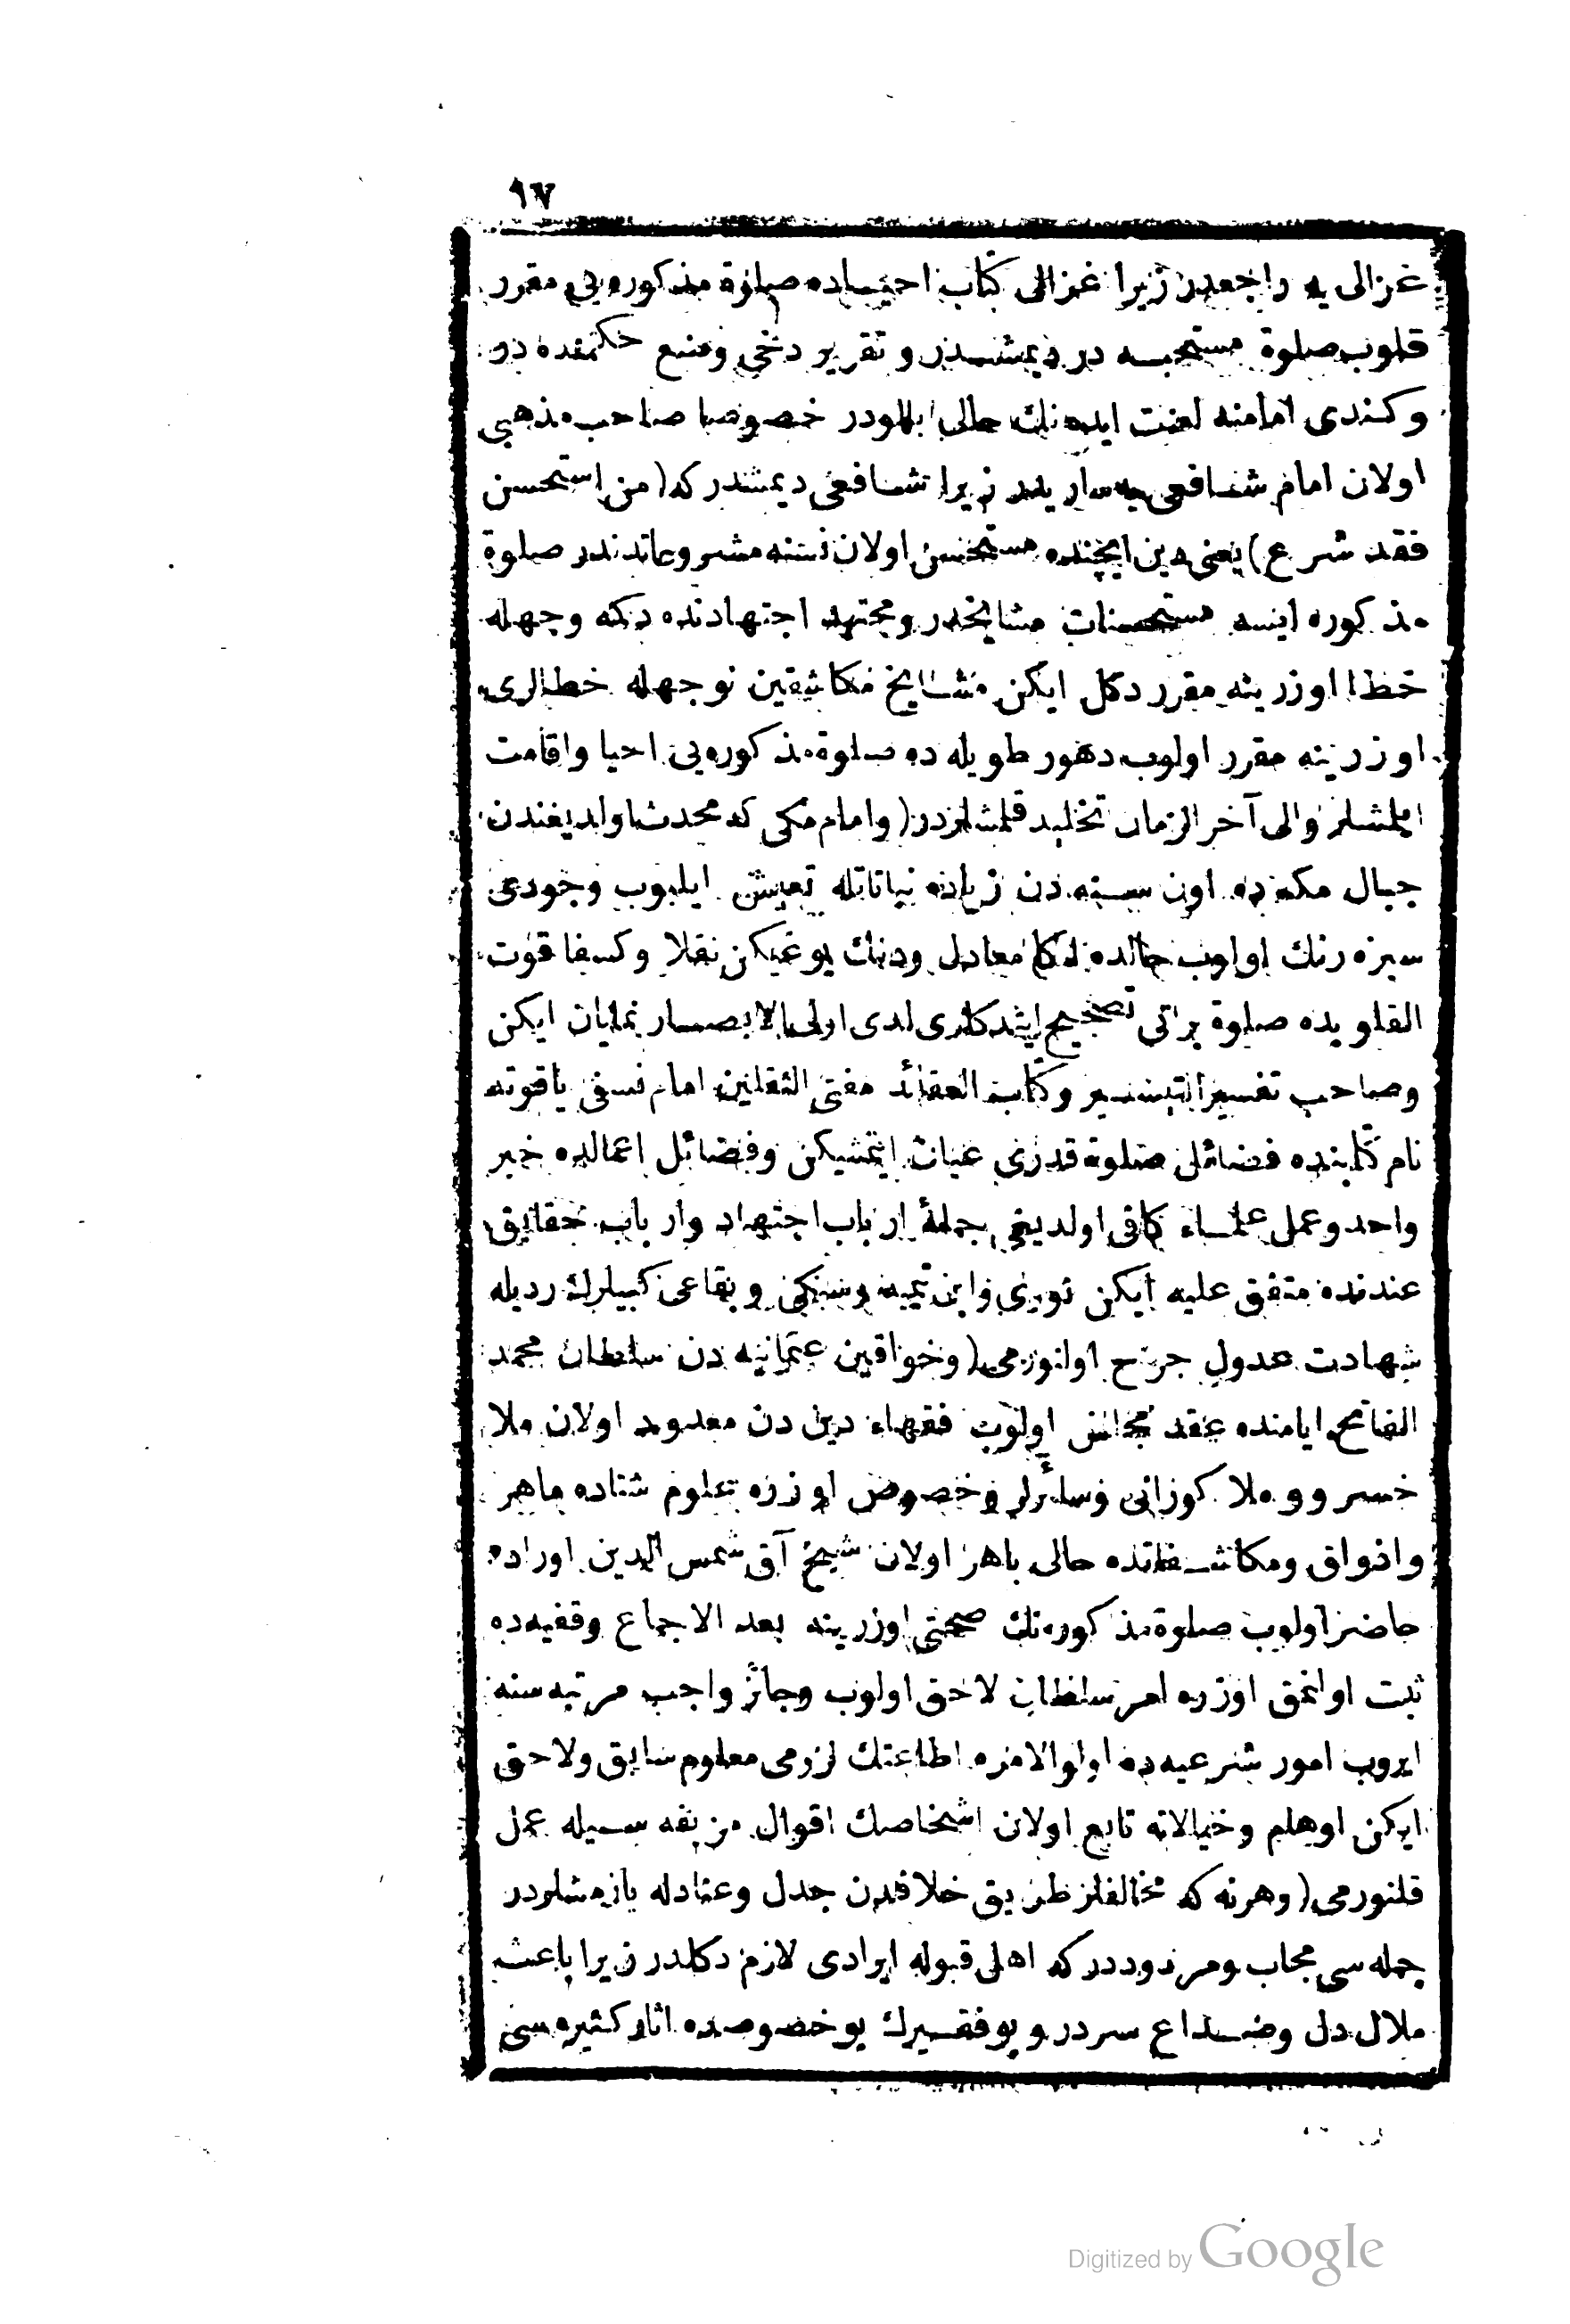 ٩٧
غزالى يه راجعدر زيرا غزالى كتاب احياده صلوة مذكوره يى مقرر
قلوب صلوة مستحبه در ديمشدر و تقرير دخى وضع حكمنده در
وكندى امامنه لعنت ايده نك حالى بللودر خصوصا صاحب مذهبى
اولان امام شافعى يه سار يدر زيرا شافعى ديمشدر كه (من استحسن
فقد شرع) يعنى دين ايچنده مستحسن اولان نسنه مشروعاتدندر صلوة
مذكوره ايسه مستحسنات مشايخدر ومجتهد اجتهادنده دكمه وجهله
خطا اوزرينه مقرر دكل ايكن مشايخ مكاشفين نوجهله خطالرى
اوزرينه مقرر اولوب دهور طويله ده صلوة مذكوره يى احيا واقامت
ايلمشلر والى آخر الزمان تخليد قلمشلردر (وامام مكى كه محدث اولديغندن
جبال مكه ده اون سنه دن زياده نباتاتله تعيش ايليوب وجودى
سبزه رنك اولوب حالده اكا معادل ودنك يوغيكن نقلا وكشفا قوت
القلوبده صلوة براتى تصحيح ايتدكلرى لدى اولى الابصار نمايان ايكن
وصاحب تفسير التيسير وكتاب العقائد مفتى الثقلين امام نسفى ياقوته
نام كتابنده فضائل صلوة قدرى عيان ايتمشيكن وفضائل اعمالده خبر
واحد وعمل علماء كافى اولديغى جملۀ ارباب اجتهاد وارباب حقايق
عندنده متفق عليه ايكن نووى وابن تيميه وسبكى و بقاعى كبيلرك رديله
شهادت عدول جرح اولنورمى (وخواقين عثمانيه دن سلطان محمد
الفاتح ايامنده عقد مجالس اولوب فقهاء دين دن معدود اولان ملا
خسرو و ملا كورانى وسائرلر وخصوص اوزره علوم شتاده ماهر
واذواق ومكاشفاتده حالى باهر اولان شيخ آق شمس الدين اوراده
حاضر اولوب صلوة مذكوره نك صحتى اوزرينه بعد الاجماع وقفيه ده
ثبت اولنمق اوزره امر سلطان لاحق اولوب وجائز واجب مرتبه سنه
ايروب امور شرعيه ده اولوالامره اطاعتك لزومى معلوم سابق ولاحق
ايكن اوهام وخيالاته تابع اولان اشخاصك اقوال مزيفه سيله عمل
قلنورمى (وهرنه كه مخالفلر طريق خلافدن جدل وعنادله يازمشلردر
جمله سى مجاب ومردوددر كه اهل قبوله ايرادى لازم دكلدر زيرا باعث
ملال دل وصداع سردر و بوفقيرك بوخصوصده اثار كثيره سى
Digitized by Google